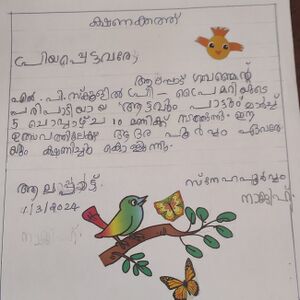 ക്ഷണക്കത്ത്
പ്രിയപ്പെട്ടവരേ,
ആലപ്പാട് ഗവൺമെന്റ്
എൽ.പി.സ്കൂളിൽ പ്രീ - പ്രൈമറിയുടെ
പരിപാടിയായ 'ആട്ടവും പാട്ടും മാർച്ച്
5 ചൊവ്വാഴ്ച 10 മണിക്ക് നടത്തുന്നു. ഈ
ഉത്സവത്തിലേക്ക് ആദര പൂർവ്വം ഏവരേ
യും ക്ഷണിച്ചു കൊള്ളുന്നു.
സ്നേഹപൂർവ്വം
1/3/2024